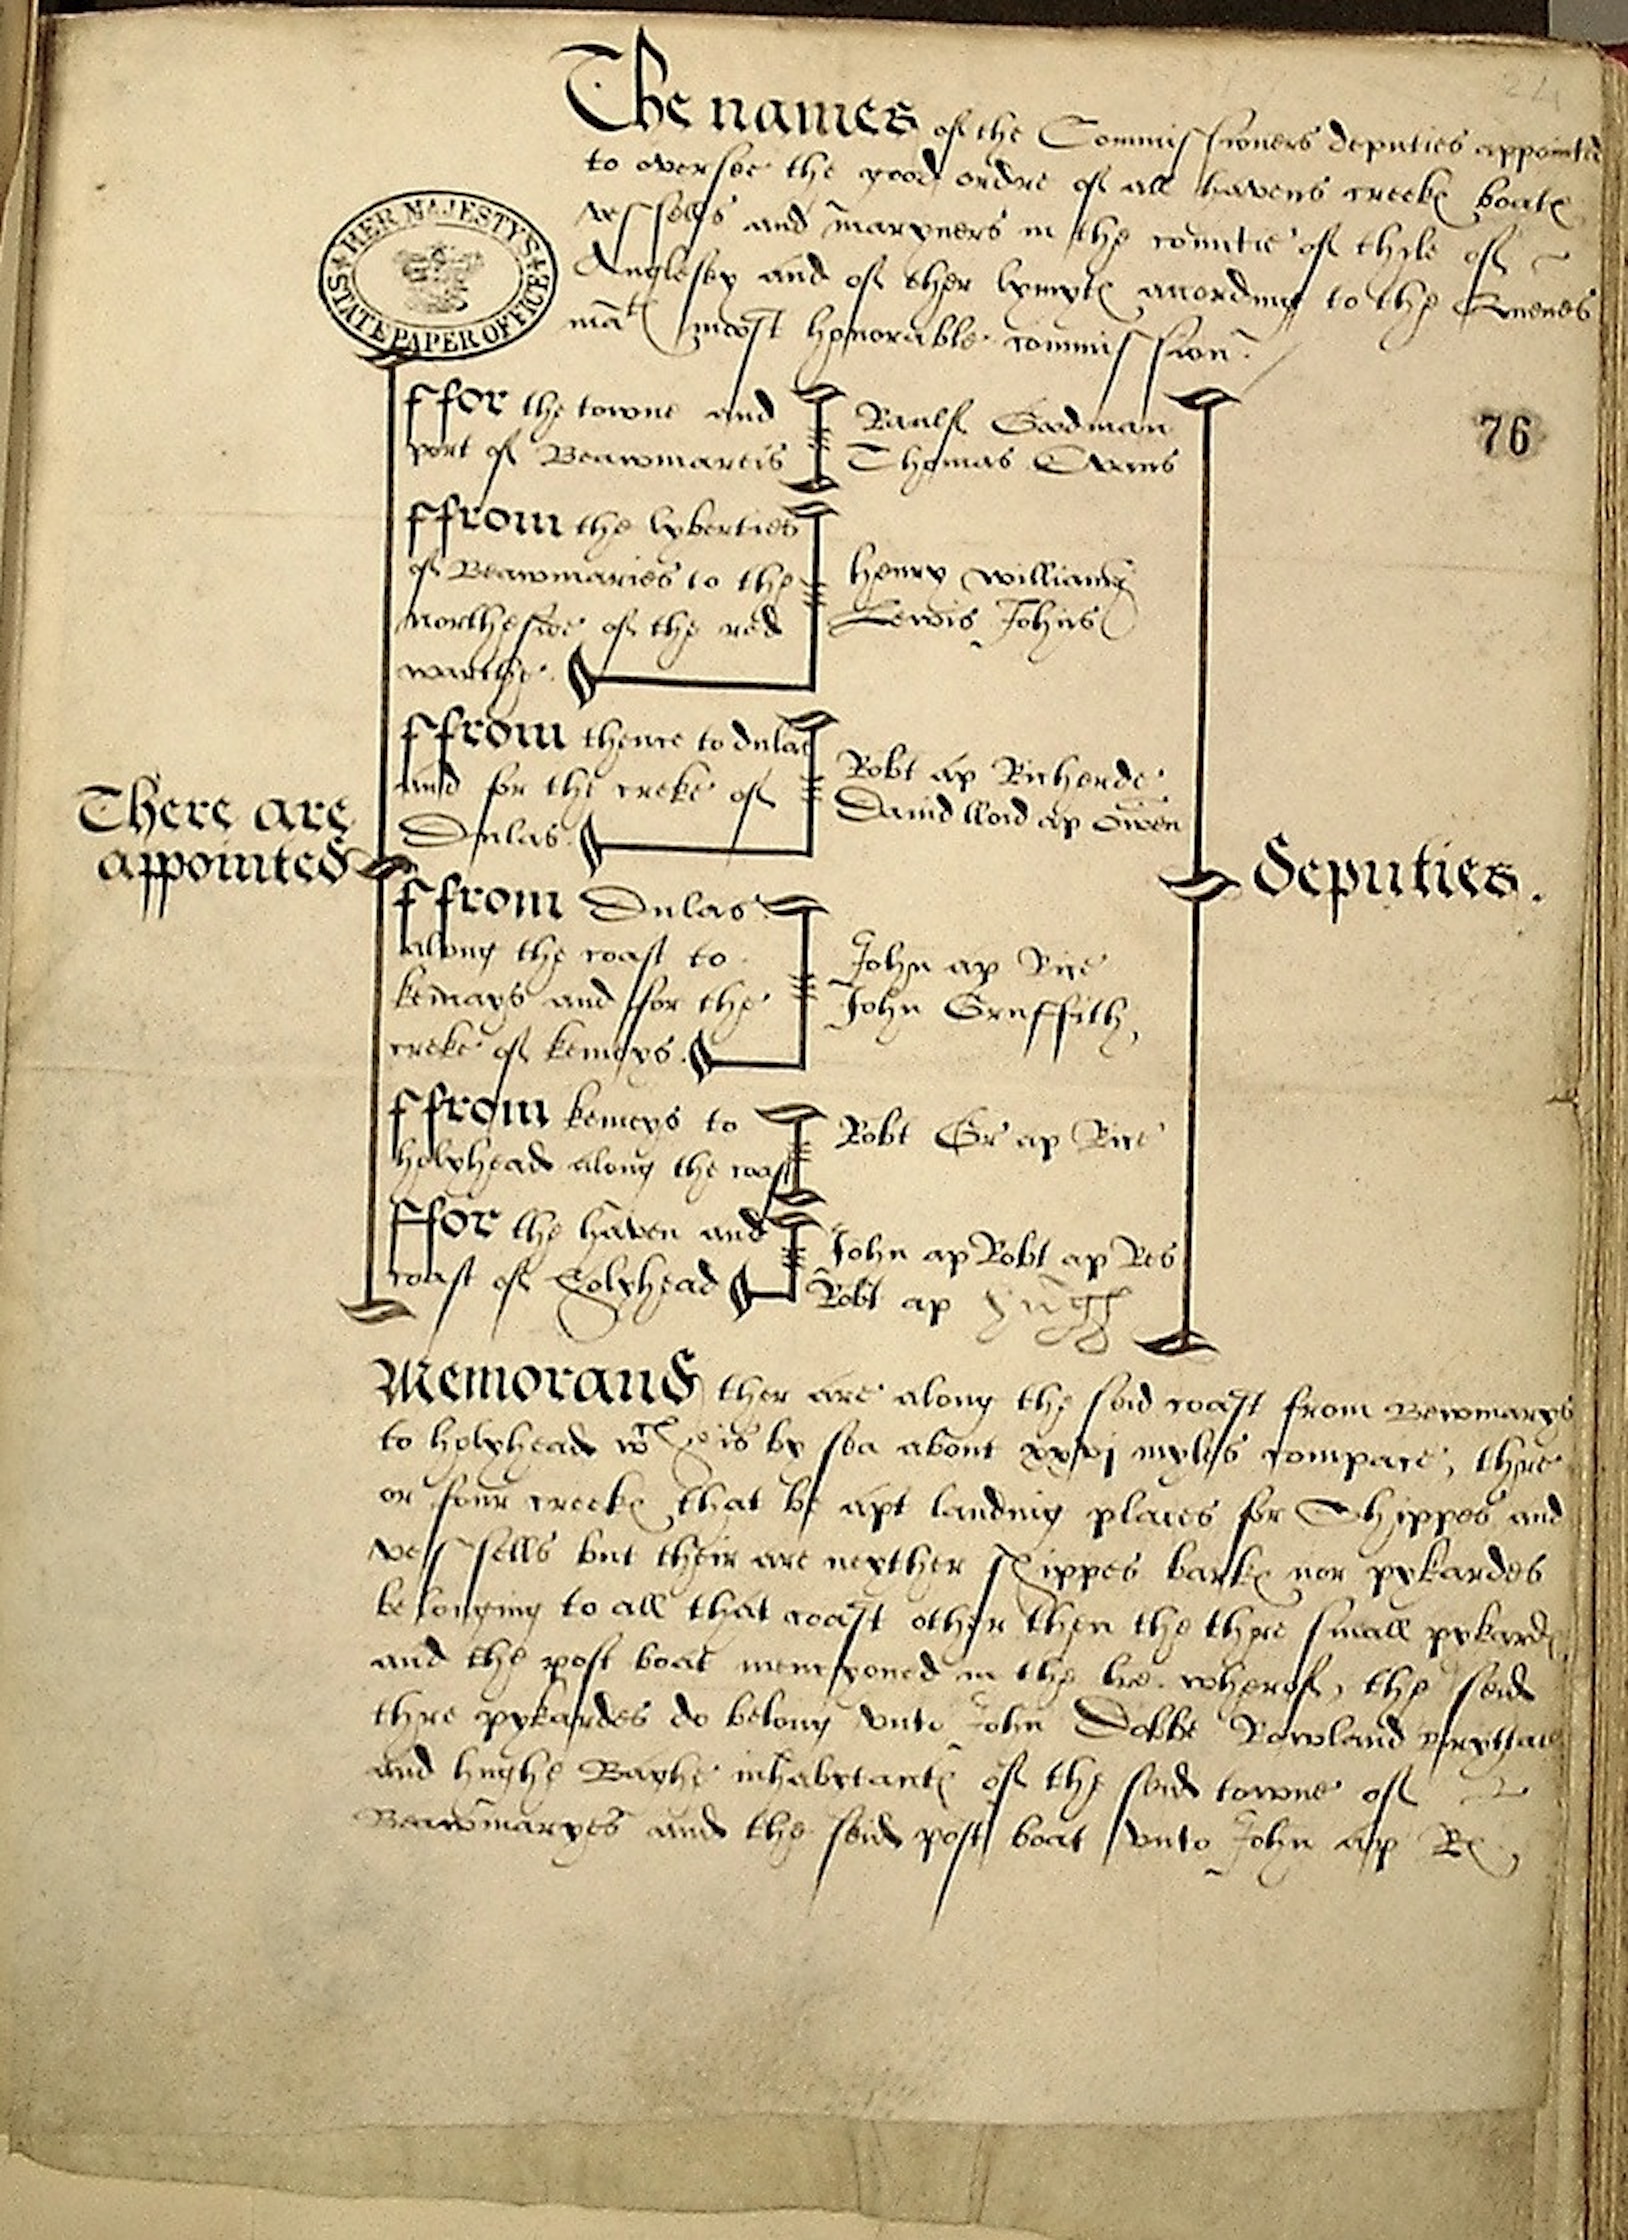 24
The names of the Commissioners deputies appointed
to oversee the good ordre of all havens creekꝭ boatꝭ
vessells and maryners in the countie of thile of
Anglesey and of ther lymytꝭ according to the Quenes
matꝭ moost honorable commission.
HER MAJESTY'S STATE PAPER OFFICE
76
ffor the towne and
port of Beawmareis
Raulf Goodman
Thomas Owens
ffrom the lyberties
of Beawmaries to the
northesyde of the red
warthe.
Henry williams
Lewis Johns
ffrom thence to dulas
and for the creke of
Dulas.
Robt ap Richerde
Dauid lloid ap Owen
There are
appointed
deputies.
ffrom Dulas
along the coast to
kemays and for the
creke of kemeys.
John ap Rice
John Gruffith,
ffrom kemeys to
holyhead along the coast
Robt Gr ap Rice
ffor the haven and
coast of Holyhead
John ap Robt ap Res
Robt ap Hugh
Memorand ther are along the seid coast from Bewmarys
to holyhead wch is by sea about xxvj myles compace, thre
or four creekꝭ that be apt landing places for Shippes and
vessells but their are neyther shippes barkꝭ nor pykardes
belonging to all that coast other then the thre small pykardꝭ
and the post boat mencyoned in the lre. wherof, the seid
thre pykardes do belong vnto John Dobbe Rowland
and hughe Baghe inhabytantꝭ of the seid towne of
Beawmaryes and the seid post boat vnto John ap Rꝭ,